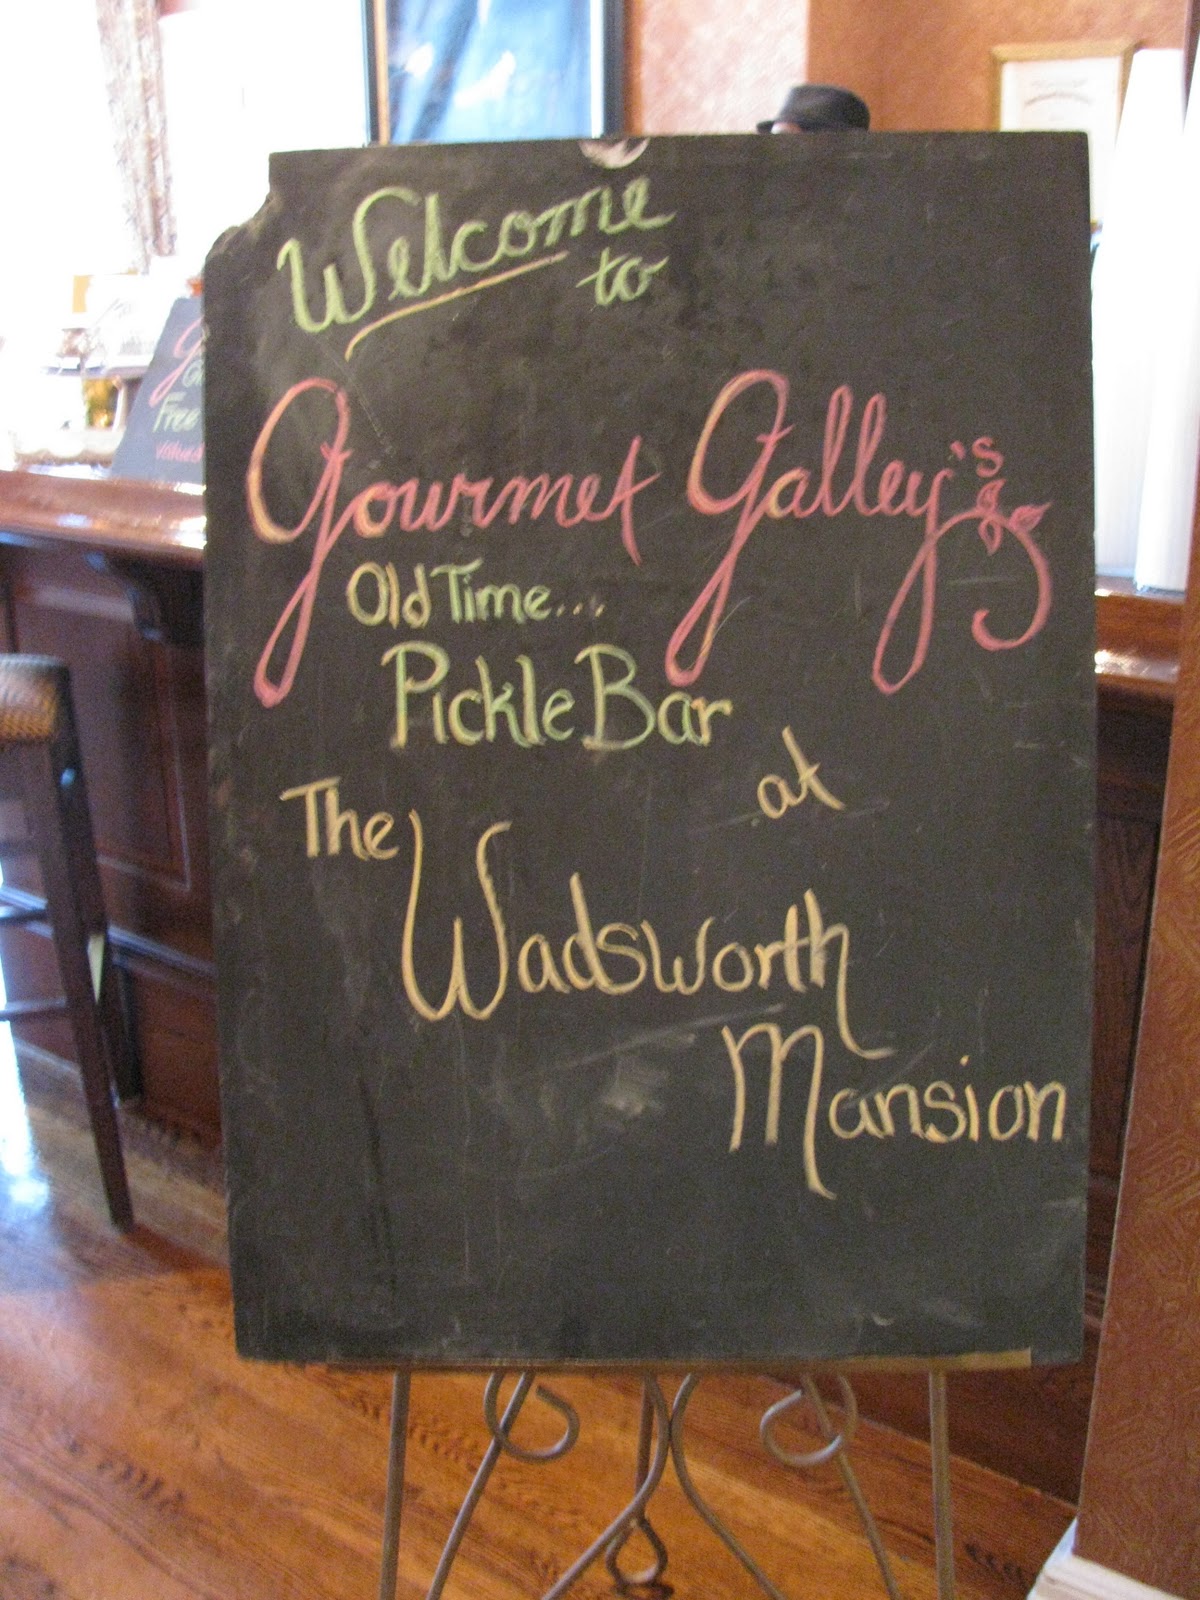 Welcome
to
Gourmet Galley's
Old Time...
Pickle Bar
at
The Wadsworth
Mansion
Free